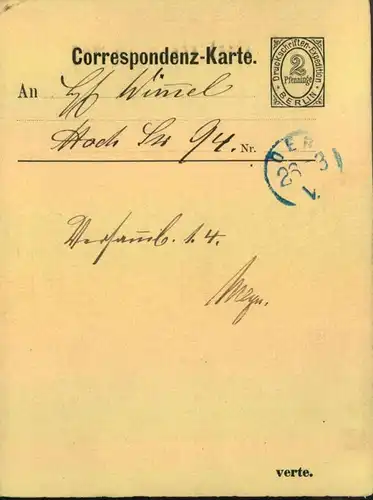 Correspondenz-Karte.
Druckschriften-Expedition
2
Pfennige
BERLIN
An Hf Wimmel
Hoch Str 94. Nr.
26 3
V.
Versamml. 1.4.
verte.